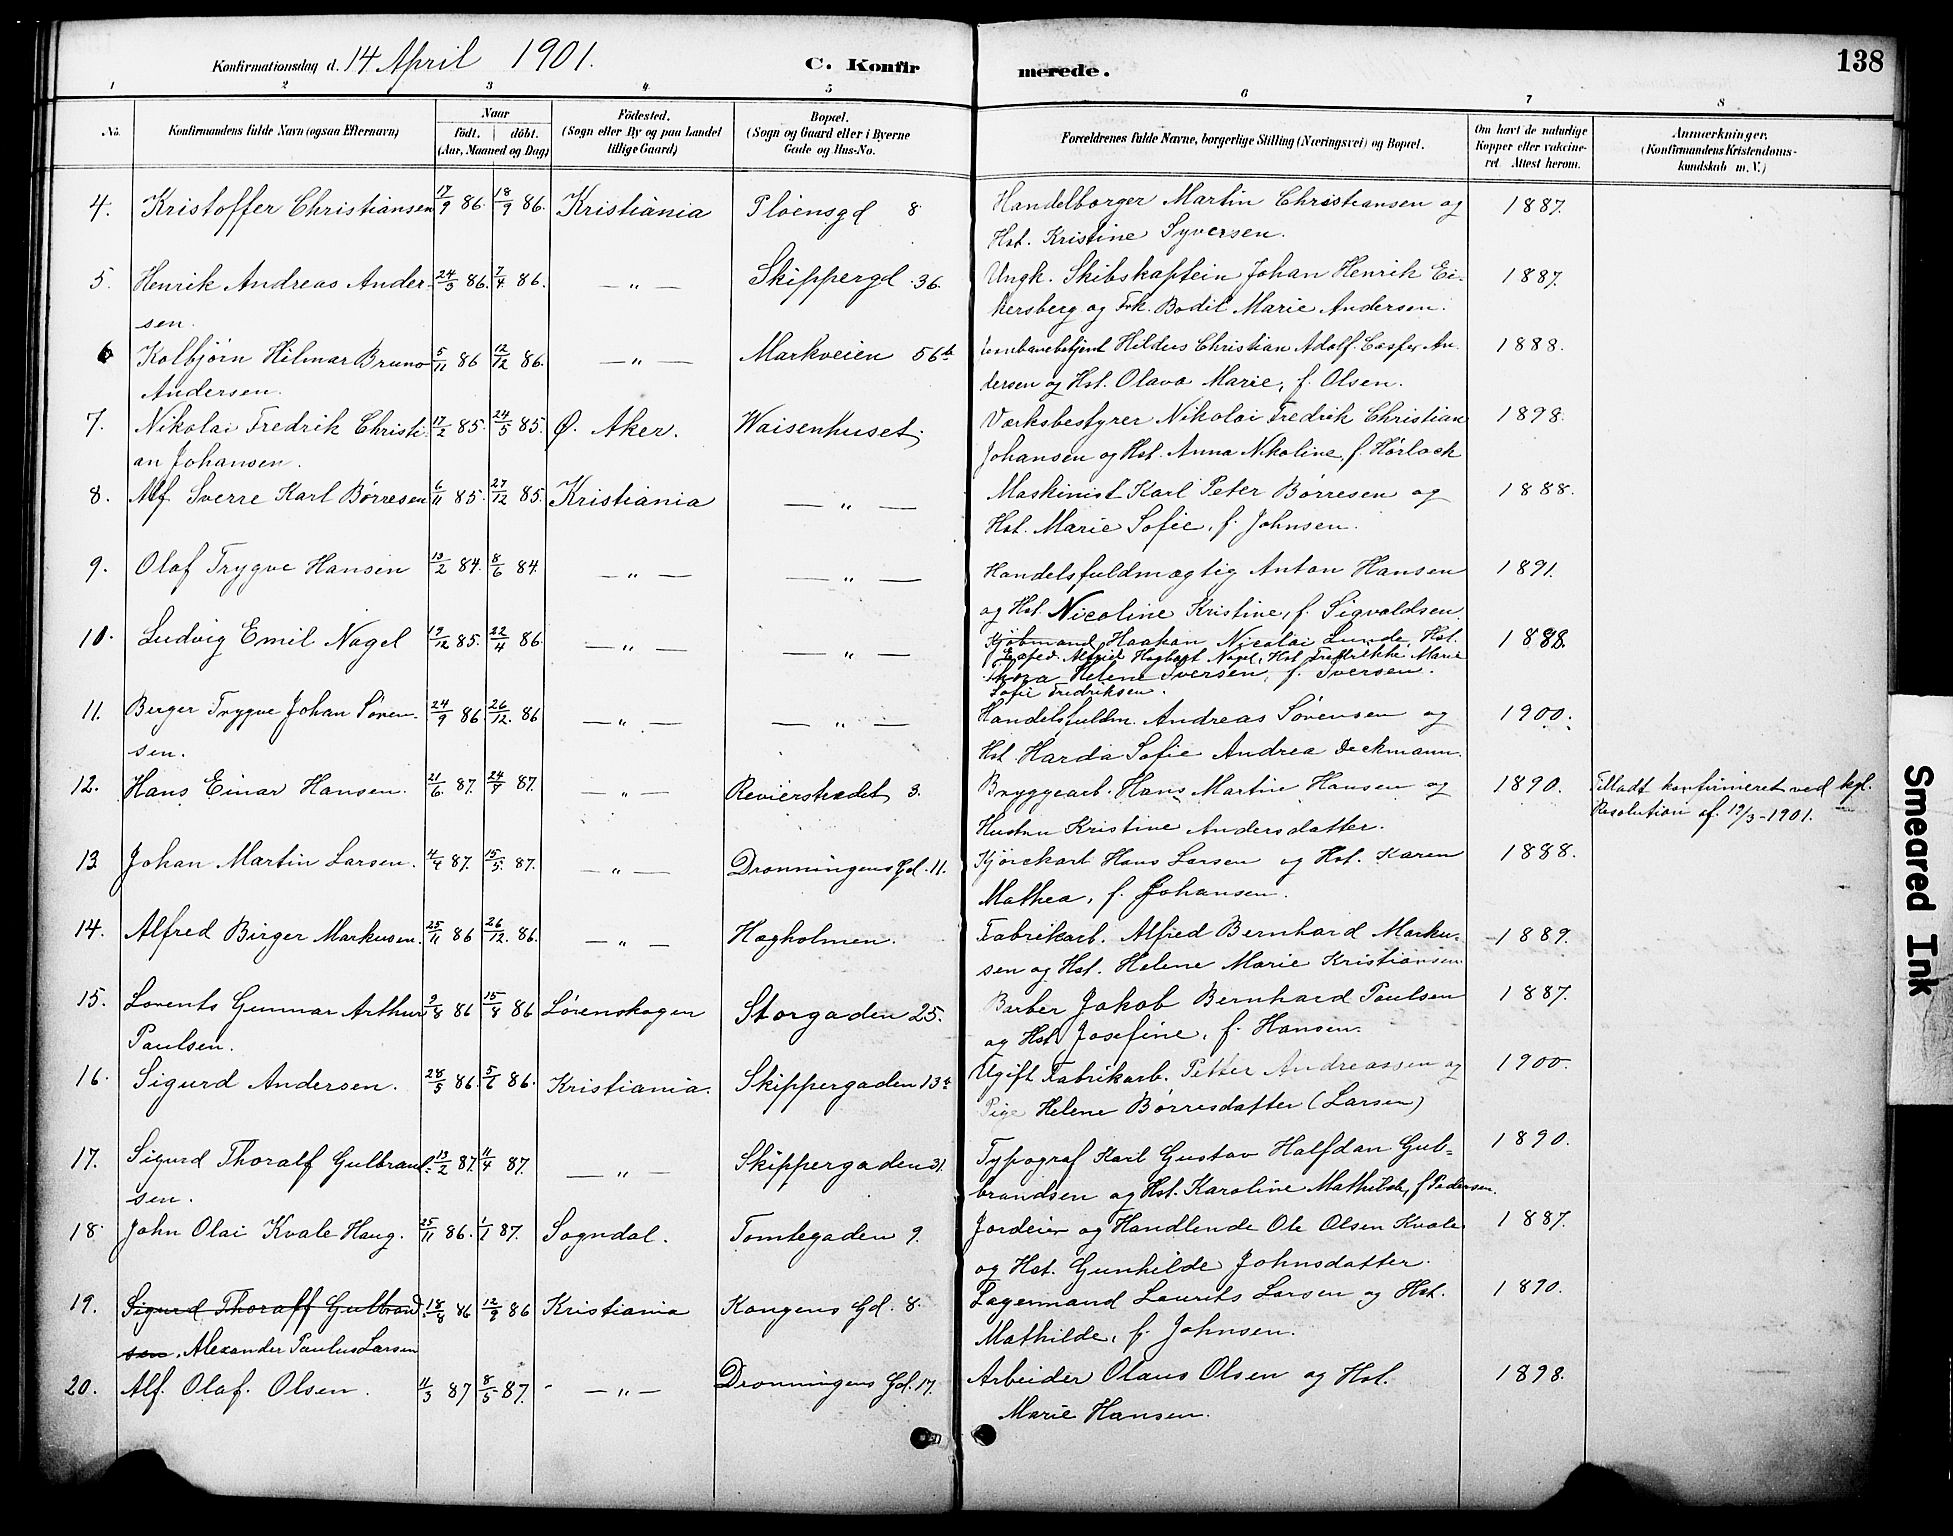 Konfirmationsdag d. 14 April 1901.
C. Konfirmerede.
138
1 2 3 4 5 6 7 8
No.
Konfirmandens fulde Navn (ogsaa Efternavn)
Naar
født. døbt.
(Aar, Maaned og Dag)
Födested.
(Sogn eller By og paa Landet
tillige Gaard)
Bopæl.
(Sogn og Gaard eller i Byerne
Gade og Hus-No.
Forældrenes fulde Navne, borgerlige Stilling (Næringsvei) og Bopæl.
Om havt de naturlige
Kopper eller vakcine-
ret. Attest herom.
Anmærkninger.
(Konfirmandens Kristendoms-
kundskab m. V.)
4. Kristoffer Christiansen 17/9 86. 18/9 86. Kristiania Pløensgd 8 Handelborger Martin Christiansen og 1887.
Hst. Kristine Syversen.
5. Henrik Andreas Ander- 24/3 86. 7/4 86. — „ — Skippergd. 36. Ungk. Skibskaptein Johan Henrik Ei- 1887.
sen. kersberg og Frk. Bodil Marie Andersen.
6 Kolbjørn Hilmar Bruno 5/11 86 12/12 86. — „ — Markveien 56b Jernbanebetjent Hildus Christian Adolf Casper An- 1888.
Andersen. dersen og Hst. Olava Marie, f. Olsen.
7. Nikolai Fredrik Christi- 17/2 85. 24/5 85. Ø. Aker. Waisenhuset. Værksbestyrer Nikolai Fredrik Christian 1898.
an Johansen. Johansen og Hst. Anna Nikoline, f. Hørlock
8. Alf Sverre Karl Børresen 6/11 85. 27/12 85. Kristiania — „ — Maskinist Karl Peter Børresen og 1888.
Hst. Marie Sofie, f. Johnsen.
9. Olaf Trygve Hansen 13/2 84. 8/6 84. — „ — — „ — Handelsfuldmægtig Anton Hansen 1891.
og Hst. Nicoline Kristine, f. Sigvaldsen
10. Ludvig Emil Nagel 19/12 85. 22/4 86 — „ — — „ — Kjøbmand Haakon Nicolai Lunde, Hst. 1888.
Exped. Alfred Hagbart Nagel, Hst. Fredrikke Marie
Thora Helene Iversen, f. Iversen.
Sofie Fredriksen.
11. Berger Trygve Johan Søren- 24/9 86. 26/12. 86 — „ — — „ — Handelsfuldm. Andreas Sørensen og 1900.
sen. Hst Harda Sofie Andrea Deckmann.
12. Hans Einar Hansen. 21/6. 87. 24/7 87. — „ — Revierstrædet 3. Bryggearb. Hans Martin Hansen og 1890. Tilladt konfirmeret ved kgl.
Hustru Kristine Andersdatter. Resolution af. 19/3-1901.
13 Johan Martin Larsen. 4/4 87. 15/5. 87. — „ — Dronningens Gd. 11. Kjørekarl Hans Larsen og Hst. Karen 1888.
Mathea, f. Johansen.
14. Alfred Birger Markusen. 25/11 86 26/12. 86. — „ — Hægholmen. Fabrikarb. Alfred Bernhard Marku- 1889.
sen og Hst. Helene Marie Kristiansen
15. Lorents Gunnar Arthur 9/8 86 15/8 86 Lørenskogen Storgaden 25. Barber Jakob Bernhard Paulsen 1887.
Paulsen. og Hst. Josefine, f. Hansen.
16. Sigurd Andersen. 28/5 86. 5/6 86. Kristiania. Skippergaden 13a Ugift Fabrikarb. Petter Andreassen og 1900.
Pige Helene Børresdatter (Larsen)
17. Sigurd Thoralf Gulbrand- 13/2 87. 11/4 87. — „ — Skippergaden 31. Typograf Karl Gustav Halfdan Gul- 1890.
sen. brandsen og Hst. Karoline Mathilde, f Pedersen.
18. John Olai Kvale Haug. 25/11 86. 1/1 87. Sogndal. Tomtegaden 9. Jordeier og Handlende Ole Olsen Kvale 1887.
og Hst. Gunhilde Johnsdatter.
19. Sigurd Thoralf Gulbrand 18/8 86 12/9 86 Kristiania Kongens Gd. 8. Lagermand Laurits Larsen og Hst. 1890.
sen. Alexander Paulus Larsen Mathilde, f. Johnsen.
20. Alf. Olaf. Olsen. 11/3 87 8/5 87. — „ — Dronningens Gd. 17. Arbeider Olaus Olsen og Hst. 1898.
Marie Hansen.
Smeared Ink